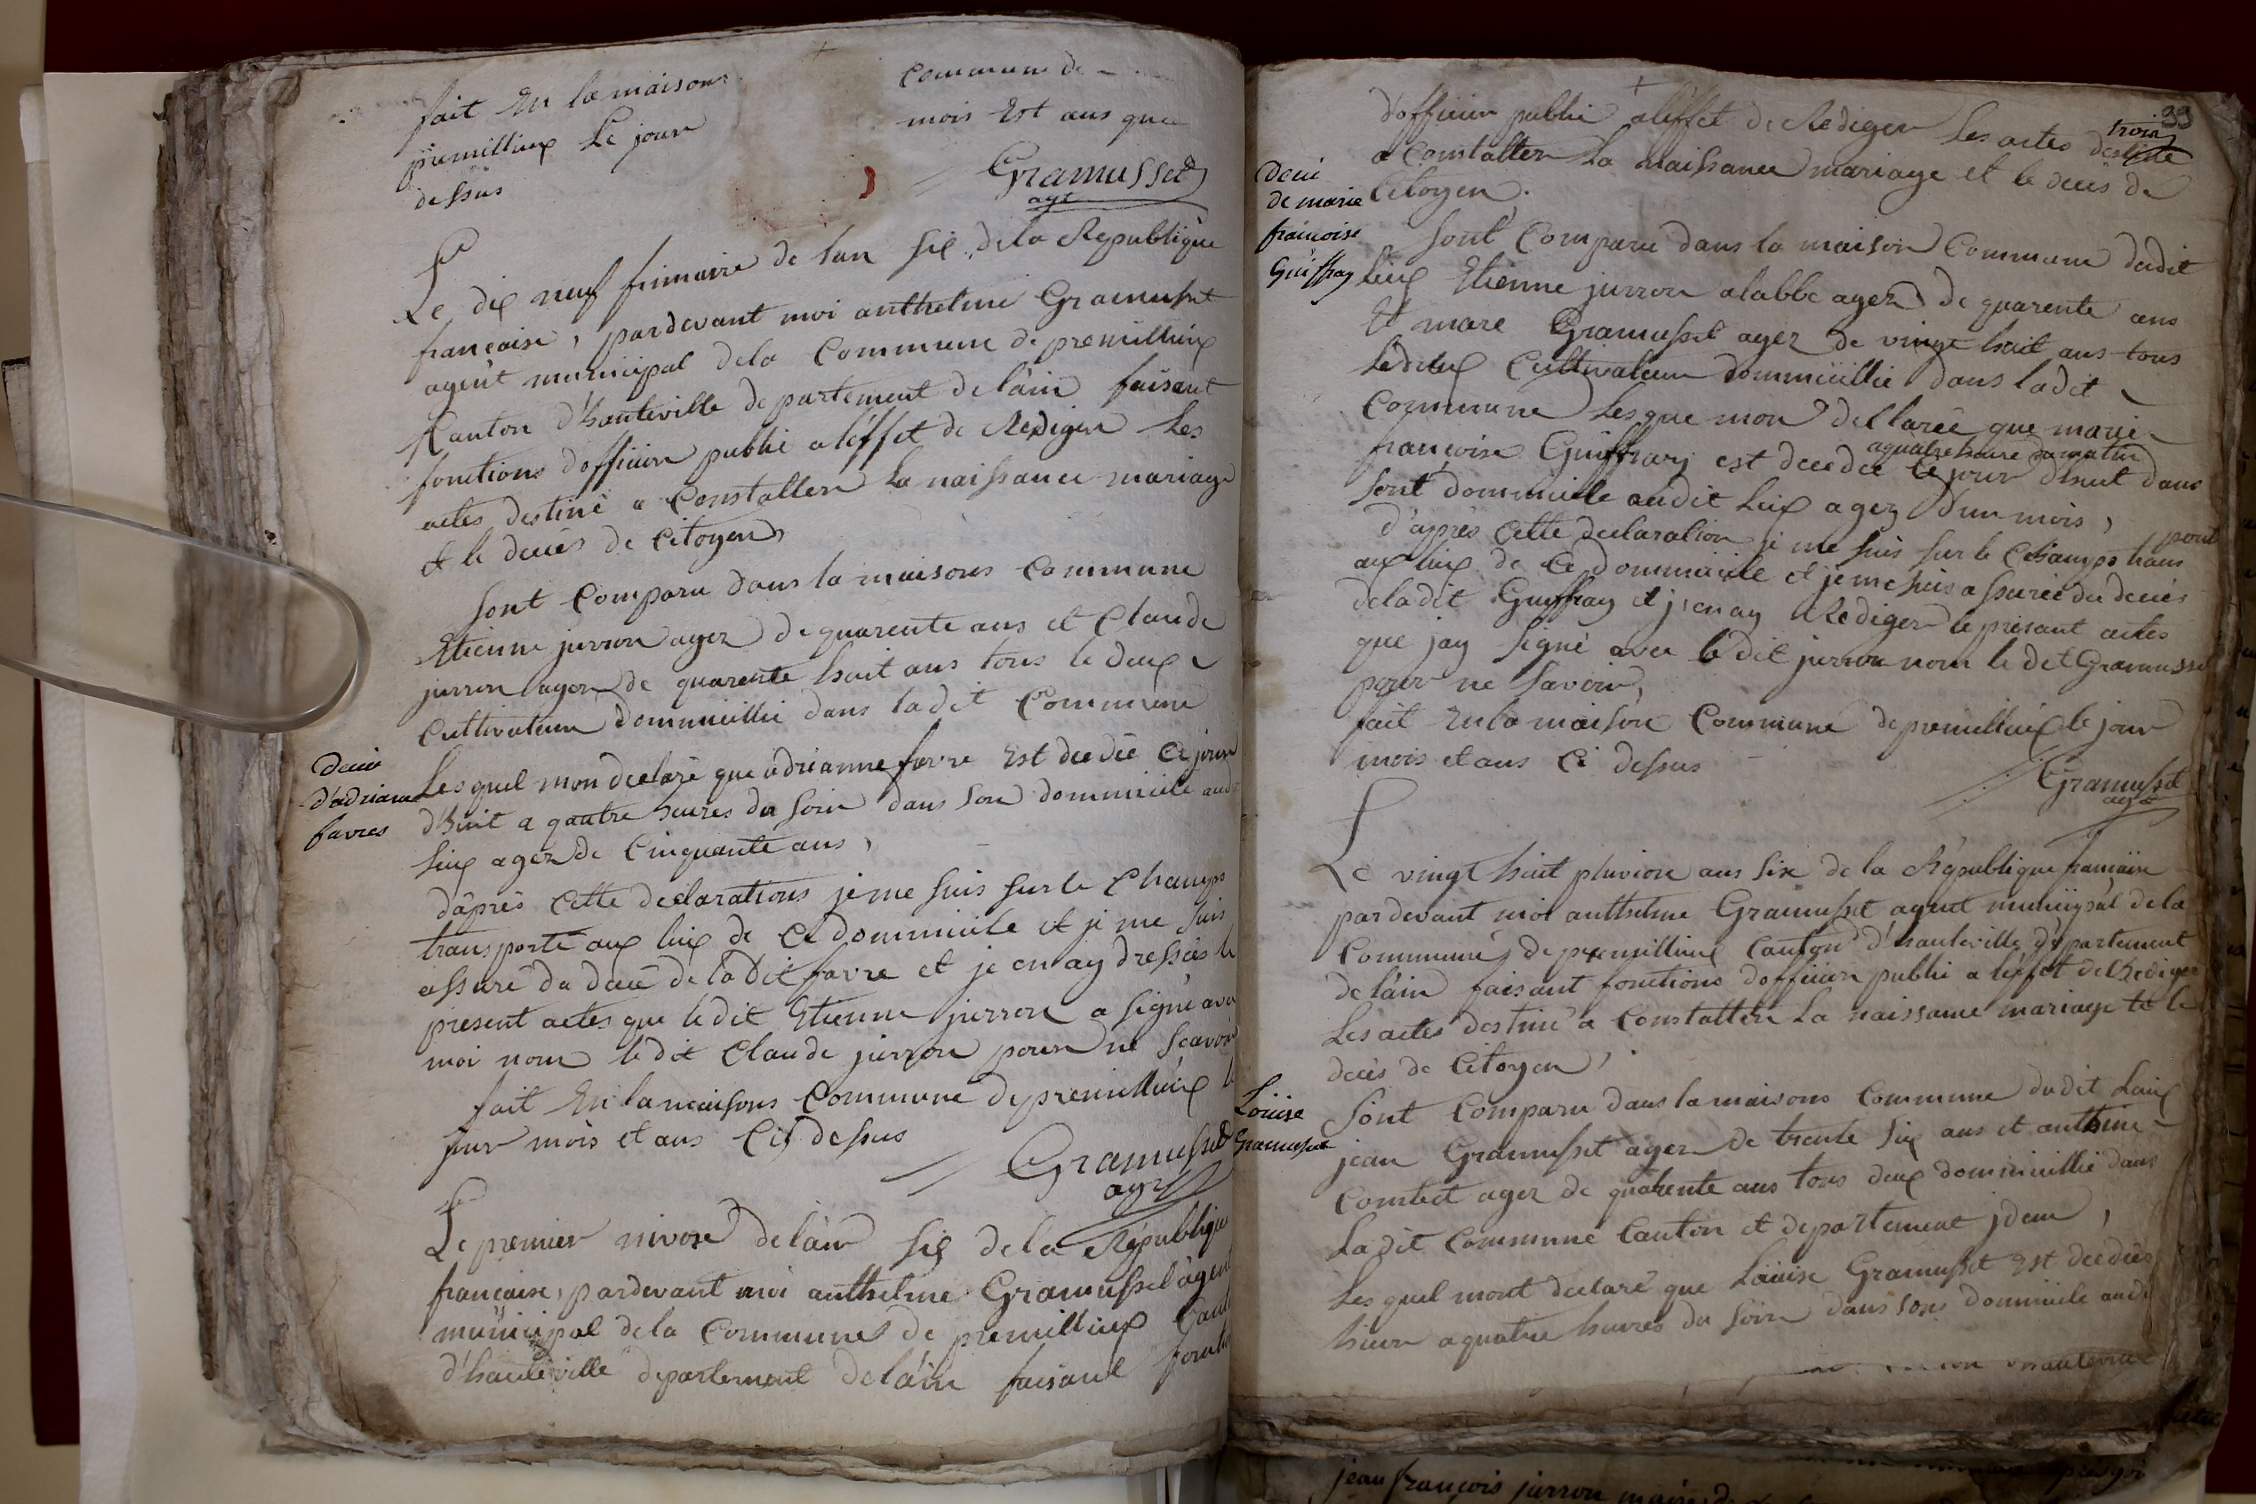 fait En la maisons commune de
premillieux Le jour mois Est ans que
dessus
Gramusset
agt
Le dix neuf frimaire de lan six dela Republique
françaisse, pardevant moi anthelme Gramusset
agent municipal dela Commune de premillieux
Kanton d'hauteville departement de lain faisant
fonctions dofficier public a léffet de Rediger Les
actes destiné a Constatter La naissance mariage
et le decès de Citoyen,
sont Comparu dans la maisons Commune
Etienne jurron agez de quarente ans et Claude
jurron agez de quarente huit ans tous le deux
Cultivateur dommicillié dans ladit Commune
Decié
d'adrianne
favres
Les quel mon declaré que adrianne favre Est decdée Ce jour
d'huit a quatre heures du soir dans son dommicile aud
lieux agez de Cinquante ans,
d'après Cette declarations je me suis sur le Champs
transporté aux lieux de Ce dommicile et je me suis
assuré du decé de la Dit favre et je en ay dressés le
present actes que le dit Etienne jurron a signé avec
moi nom le dit Claude jurron pour ne scavoir
fait En la maisons Commune de premillieux le
jour mois et ans Cis dessus
Gramusset
agt
Le premier nivose de lan six de la République
française, pardevant moi anthelme Gramusset agent
municipal dela Commune de premillieux Cant
d'hauteville departement de lain faisant foncti
33
d'officier public a léffet de Rediger Les actes destiné
trois
a Constatter La naissance mariage et le decès de
Citoyen.
Decié
de marie
françoise
Guiffray
sont Comparu dans la maison Commune dudit
lieux Etienne jurron alabbe agez de quarente ans
Et marc Gramusset agez de vingt huit ans tous
le deux Cultivateur dommicillié dans ladit
Commune Lesque mon dellarée que marie
françoise Guiffray est decedée Ce jour dhuit dans
aquatre heure du matin
sont dommicile audit lieux agez d'un mois,
d'après Cette declaration je me suis sur le Champs trans
porté
aux lieux de Ce dommicile et je me suis assurée du decés
dela dit Guiffray et j'en ay Rediger le présant actes
que jay signé avec le dit jurron nom le dit Gramusset
pour ne savoir,
fait En la maison Commune de premillieux le jour
mois et ans Ci dessus
Gramusset
agt
Le vingt huit pluviose ans six de la République française
pardevant moi anthelme Gramusset agent municipal de la
Commune de premillieux Canton d'hauteville departement
de lain faisant fonctions dofficier public a léffet de Rediger
Les actes destiné a Constatter La naissance mariage et le
decés de Citoyen,
Louise
Gramusset
sont Comparu dans la maisons Commune du dit Lieux
jean Gramusset agez de trente six ans et anthelme
Comtet agez de quarente ans tous deux dommicillié dans
La dit Commune Canton et departement jdem,
Les quel mont declaré que Louise Gramusset Est decdées
hier a quatre heures du soir dans sons domicile audi
jean françois jurron maire de